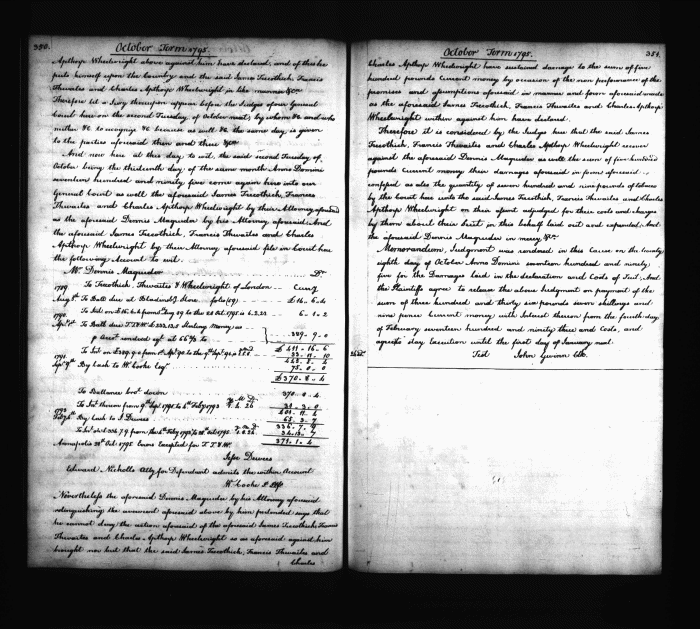 350.
October Term 1795.
Apthorp Wheelwright above against him have declared, and of this he
puts himself upon the Country and the said James Trecothick, Francis
Thwaites and Charles Apthorp Wheelwright in like manner &c
Therefore let a Jury thereupon appear before the Judges of our General
Court here on the second Tuesday of October next, by whom &c and who
neither &c to recognize &c because as well &c the same day is given
to the parties aforesaid then and there &c
And now here at this day to wit, the said second Tuesday of
October being the thirteenth day of the same month Anno Domini
seventeen hundred and ninety five come again here into our
General Court as well the aforesaid James Trecothick, Francis
Thwaites and Charles Apthorp Wheelwright by their Attorney aforesaid
as the aforesaid Dennis Magruder by his Attorney aforesaid. And
the aforesaid James Trecothick, Francis Thwaites and Charles
Apthorp Wheelwright by their Attorney aforesaid file in Court here
the following Account To wit
Mr. Dennis Magruder Dr.
To Trecothick, Thwaites & Wheelwright of London Curry
1789
Augt 8th To Ball due at Bladensbg Store folio (19) £ 16. 6. 4
1790
£ 411 - 16 - 6
1791
Sepr 9th By Cash to Wm Cooke Esqr 75. 0. 0
£ 370. 8. 4
To Ballance brot down 370. 8. 4
To Int thereon from 9th Sepr 1791 to 6th Feby 1793
1793
Feby 6th By Cash to J Dewees 65. 3. 7
336. 7. 9
371. 1. 4
Annapolis Oct. 1795 Errors Excepted for T T & W.
Jesse Dewees
Edward Nicholls Atty for Defendant admits the within Account
Wm Cooke P. Atty
Nevertheless the aforesaid Dennis Magruder by his Attorney aforesaid
relinquishing the averment aforesaid above by him pretended says that
he cannot deny the action aforesaid of the aforesaid James Trecothick, Francis
Thwaites and Charles Apthorp Wheelwright so as aforesaid against him
brought nor but that the said James Trecothick, Francis Thwaites and
Charles
October Term 1795.
351.
Charles Apthorp Wheelwright have sustained damage to the sum of five
hundred pounds Current money by occasion of the non performance of the
promises and assumptions aforesaid in manner and form aforesaid made
as the aforesaid James Trecothick, Francis Thwaites and Charles Apthorp
Wheelwright within against him have declared.
Therefore it is considered by the Judges here that the said James
Trecothick, Francis Thwaites and Charles Apthorp Wheelwright recover
against the aforesaid Dennis Magruder as well the sum of five hundred
pounds Current money their damages aforesaid in form aforesaid
confessed as also the quantity of seven hundred and nine pounds of tobacco
by the Court here unto the said James Trecothick, Francis Thwaites and Charles
Apthorp Wheelwright on their assent adjudged for their costs and charges
by them about their suit in this behalf laid out and expended. And
the aforesaid Dennis Magruder in mercy, &c.
Memorandum, Judgment was rendered in this Cause on the twenty
eighth day of October Anno Domini seventeen hundred and ninety
five for the Damages laid in the declaration and Costs of Suit. And
the Plaintiffs agree to release the above Judgment on payment of the
sum of three hundred and thirty six pounds seven shillings and
nine pence Current money with Interest thereon from the fourth day
of February seventeen hundred and ninety three and Costs, and
agrees stay Execution until the first day of January next.
Test John Gwinn Clk.